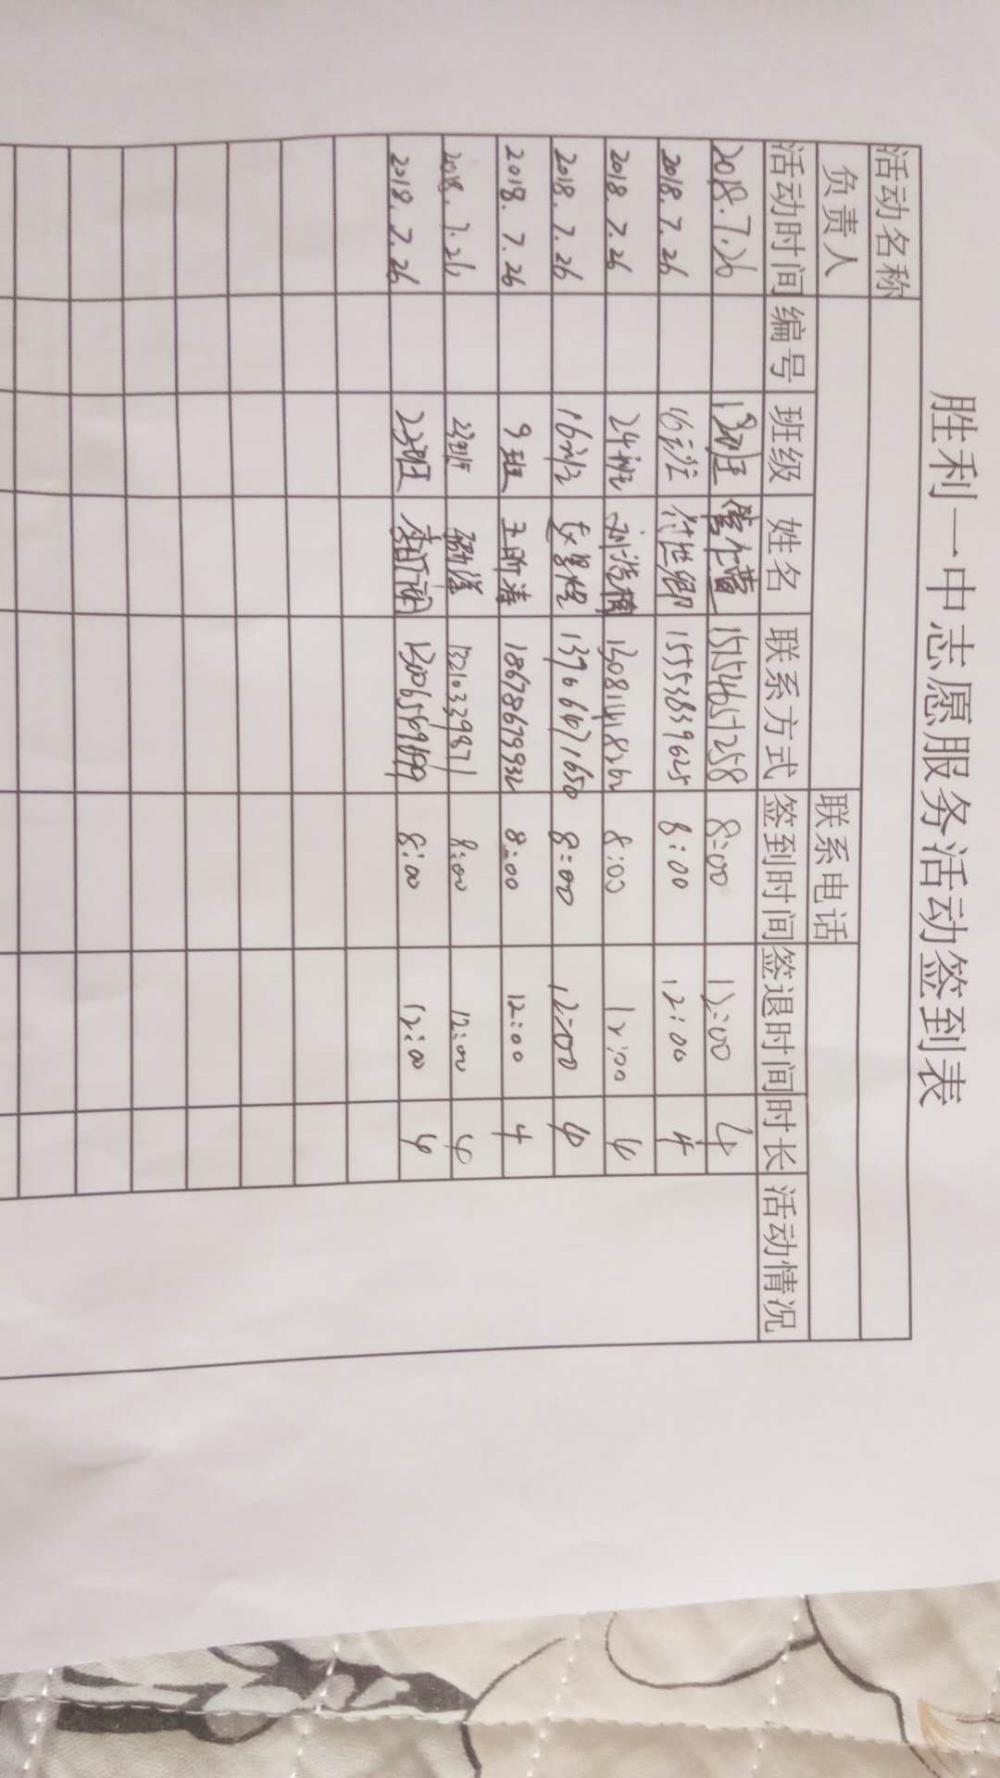 胜利一中志愿服务活动签到表
活动名称
负责人 联系电话
活动时间 编号 班级 姓名 联系方式 签到时间 签退时间 时长 活动情况
2018.7.26 15154657258 8:00 12:00 4
2018.7.26 16班 付世卿 15553839625 8:00 12:00 4
2018.7.26 24班 8:00 12:00 4
2018.7.26 16班 13706471650 8:00 12:00 4
2018.7.26 9班 王昕涛 18678679932 8:00 12:00 4
2018.7.26 23班 13210339871 8:00 12:00 4
2018.7.26 23班 8:00 12:00 4